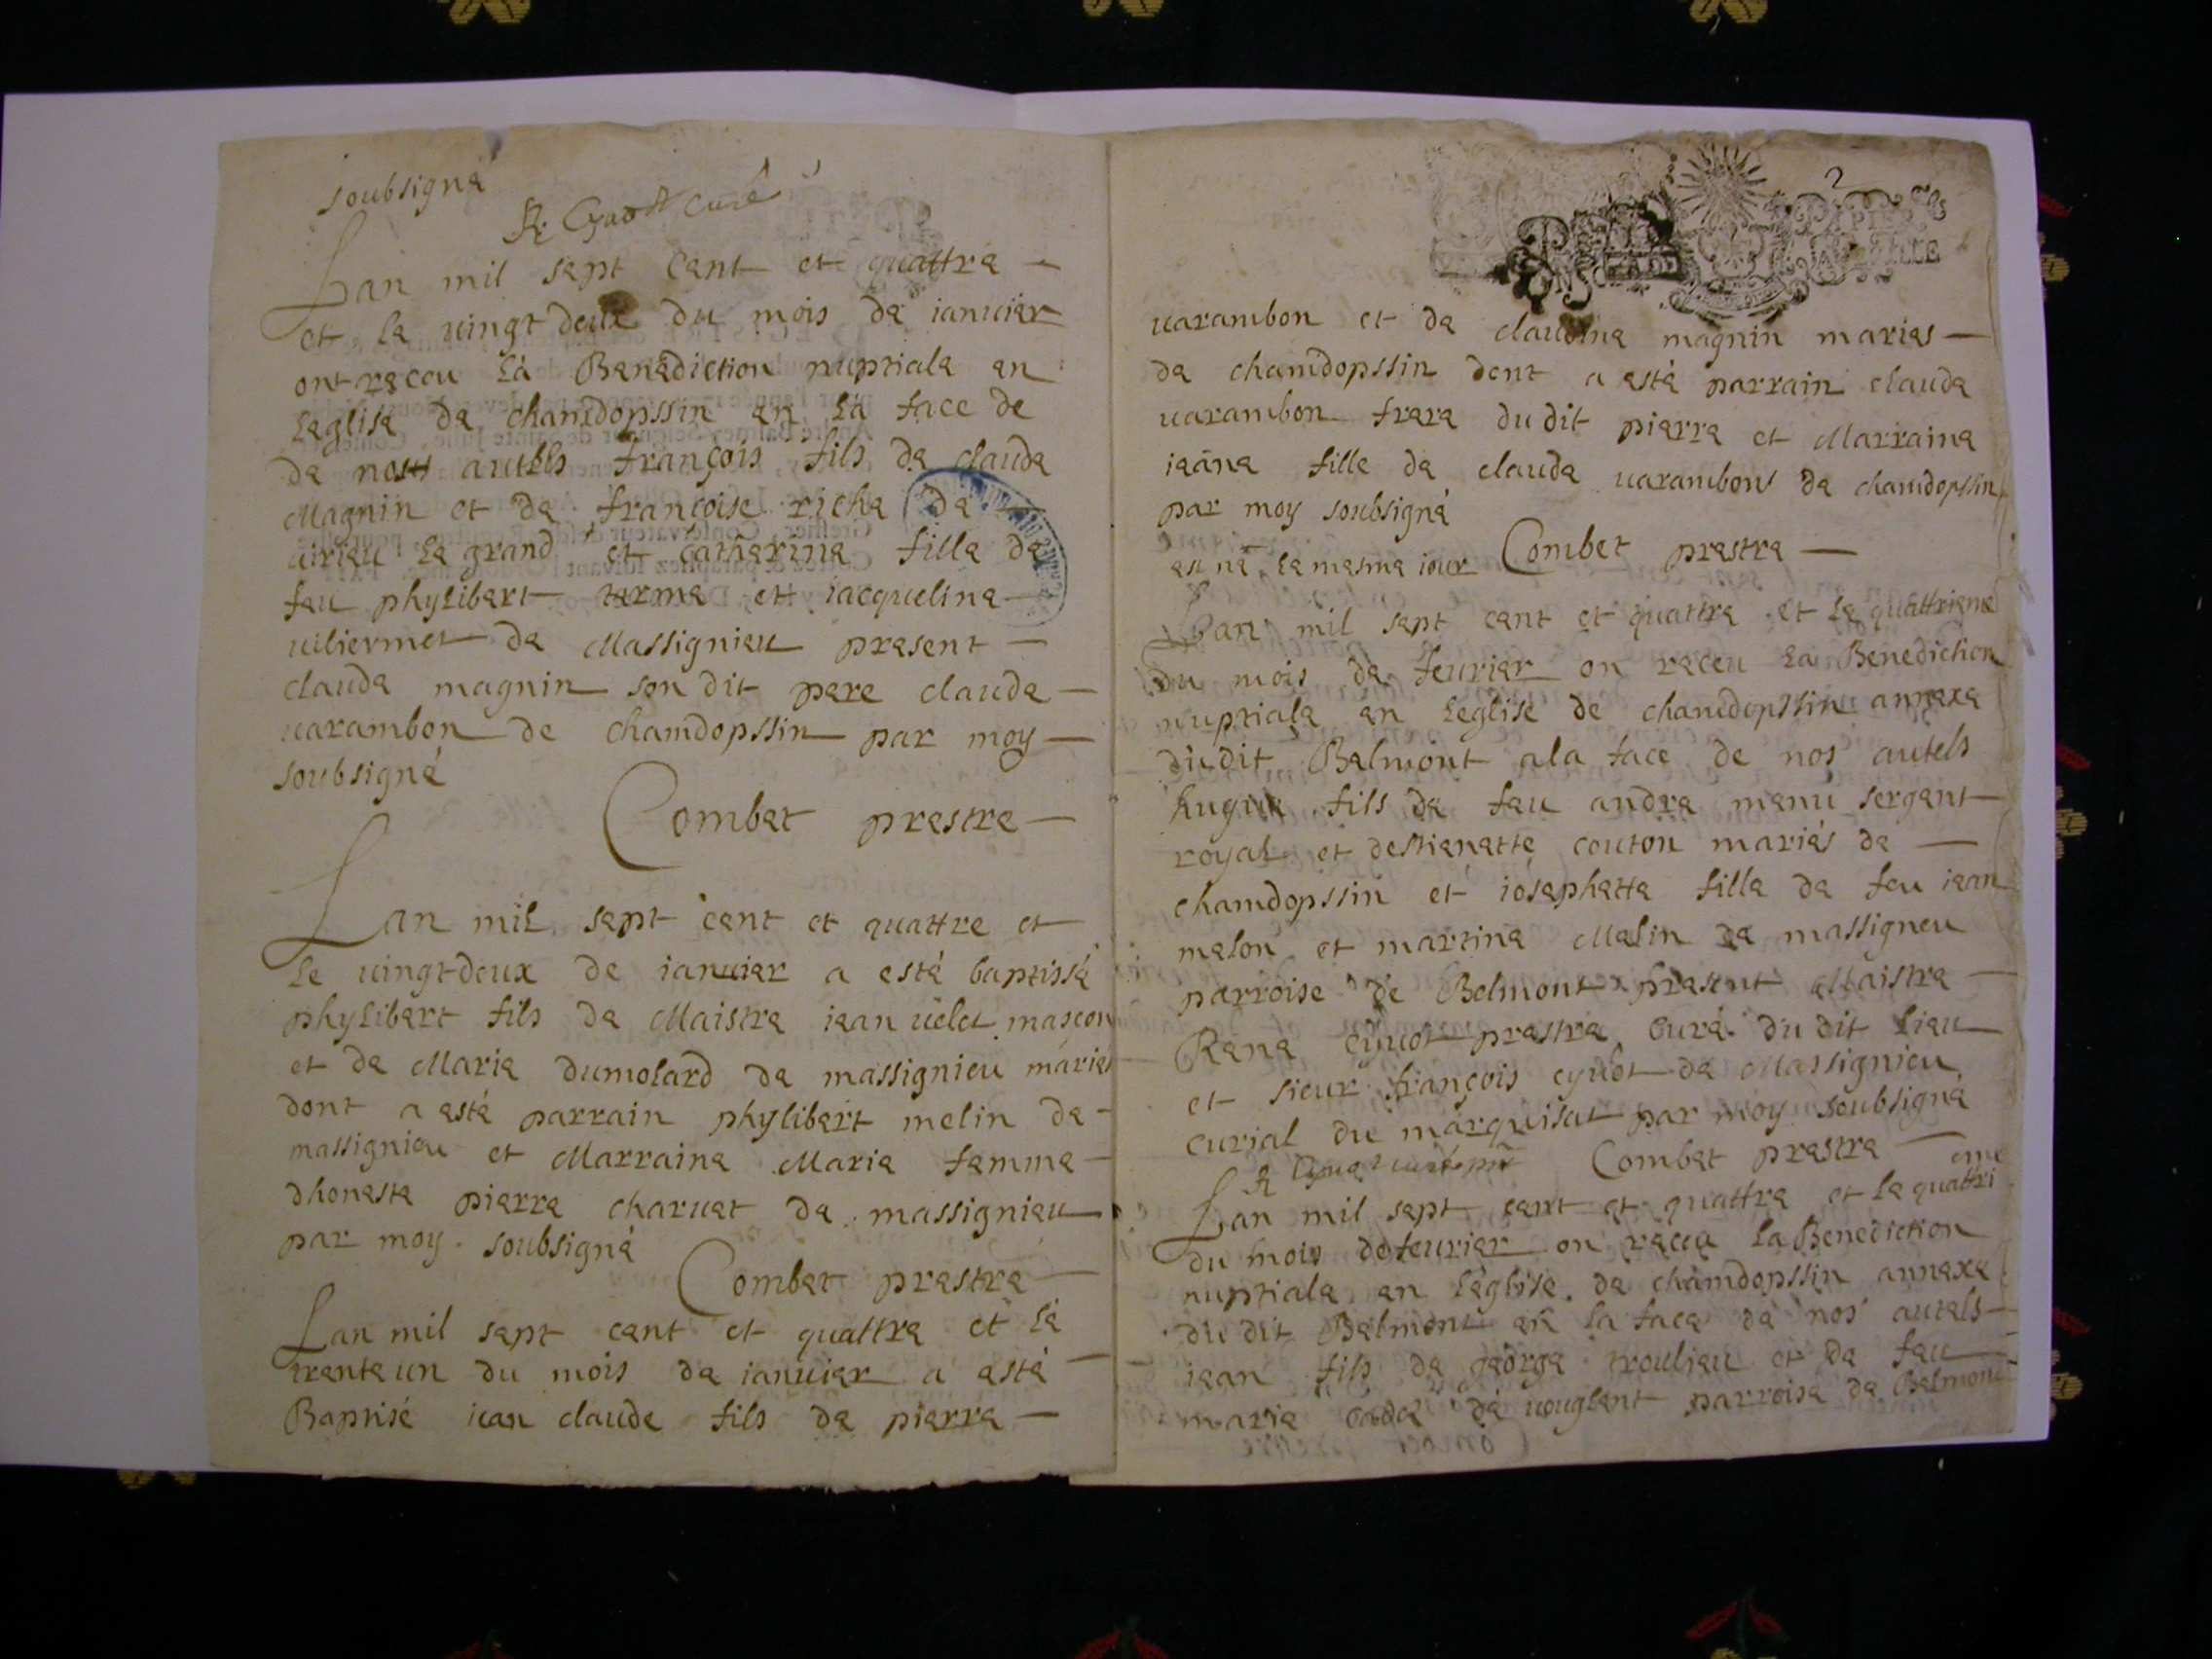 soubsigné
R. Cyuot curé
Lan mil sept cent et quattre
et le uingt deux du mois de ianuier
ont receu la Benediction nuptiale en
leglise de chamdopssin en la face de
de nos autels françois fils de claude
Magnin et de françoise riche de
uirieu le grand et catherine fille de
feu phylibert terme et iacqueline
uiliermet de Massignieu present
claude magnin son dit pere claude
uarambon de chamdopssin par moy
soubsigné
Combet prestre
Lan mil sept cent et quattre et
le uingt deux de ianuier a esté baptissé
phylibert fils de Maistre iean uelet mascon
et de Marie dumolard de massignieu mariés
dont a esté parrain phylibert melin de
massignieu et Marraine Marie femme
dhoneste pierre charuet de massignieu
par moy soubsigné
Combet prestre
Lan mil sept cent et quattre et le
trente un du mois de ianuier a esté
Baptisé iean claude fils de pierre
2
uarambon et de claudine magnin maries
de chamdopssin dont a esté parrain claude
uarambon frere du dit pierre et Marraine
ieane fille de claude uarambon de chamdopssin
par moy soubsigné
est né le mesme iour Combet prestre
Lan mil sept cent et quattre et le quattrieme
du mois de feurier on receu la Benediction
nuptiale en leglise de chamdopssin annexe
du dit Belmont a la face de nos autels
hugue fils de feu andre menu sergent
royal et destienette couton mariés de
chamdopssin et iosephatte fille de feu iean
melon et martine Melin de massigneu
parroise de Belmont present Maistre
Rene cyuot prestre Curé du dit lieu
et sieur françois cyuot de Massignieu
curial du marquisat par moy soubsigné
R Cyuot curé pnt Combet prestre
Lan mil sept cent et quattre et le quattri eme
du mois de feurier on receu la Benediction
nuptiale en leglise de chamdopssin annexe
du dit Belmont en la face de nos autels
iean fils de george troulieu et de feu
marie de uouglent parroise de Belmont